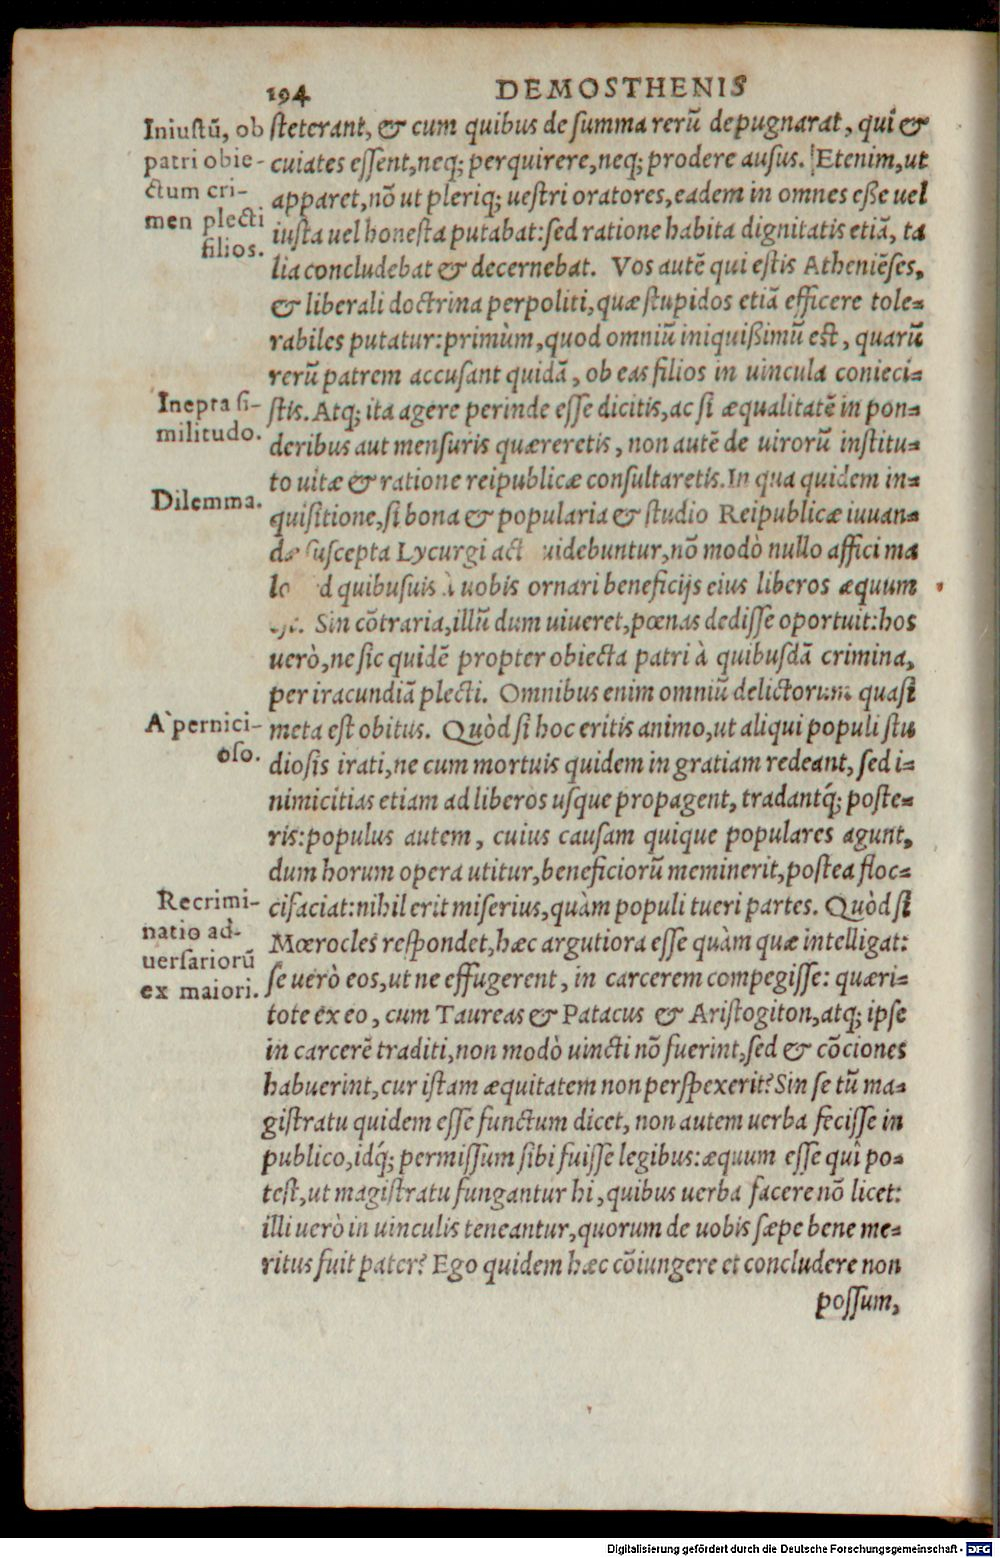 194 DEMOSTHENIS
Iniustũ, ob
patri obie-
ctum cri-
men plecti
filios.
steterant, & cum quibus de summa rerũ depugnarat, qui &
cuiates essent, neq; perquirere, neq; prodere ausus. Etenim, ut
apparet, nõ ut pleriq; uestri oratores, eadem in omnes esse uel
iusta uel honesta putabat: sed ratione habita dignitatis etiã, ta
lia concludebat & decernebat. Vos autẽ qui estis Atheniẽses,
& liberali doctrina perpoliti, quæ stupidos etiã efficere tole-
rabiles putatur: primùm, quod omniũ iniquißimũ est, quarũ
rerũ patrem accusant quidã, ob eas filios in uincula conieci-
Inepta si-
militudo.
stis. Atq; ita agere perinde esse dicitis, ac si æqualitatẽ in pon-
deribus aut mensuris quæreretis, non autẽ de uirorũ institu-
to uitæ & ratione reipublicæ consultaretis. In qua quidem in-
Dilemma.
quisitione, si bona & popularia & studio Reipublicæ iuuan-
dæ suscepta Lycurgi act uidebuntur, nõ modò nullo affici ma
lo d quibusuis à uobis ornari beneficijs eius liberos æquum
Sin cõtraria, illũ dum uiueret, pœnas dedisse oportuit: hos
uerò, ne sic quidẽ propter obiecta patri à quibusdã crimina,
per iracundiã plecti. Omnibus enim omniũ delictorum quasi
A` pernici-
oso.
meta est obitus. Quòd si hoc eritis animo, ut aliqui populi stu
diosis irati, ne cum mortuis quidem in gratiam redeant, sed i-
nimicitias etiam ad liberos usque propagent, tradantq́; poste-
ris: populus autem, cuius causam quique populares agunt,
dum horum opera utitur, beneficiorũ meminerit, postea floc-
Recrimi-
natio ad-
uersariorũ
ex maiori.
cifaciat: nihil erit miserius, quàm populi tueri partes. Quòd si
Mœrocles respondet, hæc argutiora esse quàm quæ intelligat:
se uerò eos, ut ne effugerent, in carcerem compegisse: quæri-
tote ex eo, cum Taureas & Patacus & Aristogiton, atq; ipse
in carcerẽ traditi, non modò uincti nõ fuerint, sed & cõciones
habuerint, cur istam æquitatem non perspexerit? Sin se tũ ma-
gistratu quidem esse functum dicet, non autem uerba fecisse in
publico, idq́; permissum sibi fuisse legibus: æquum esse quî po-
test, ut magistratu fungantur hi, quibus uerba facere nõ licet:
illi uerò in uinculis teneantur, quorum de uobis sæpe bene me-
ritus fuit pater? Ego quidem hæc cõiungere et concludere non
possum,
Digitalisierung gefördert durch die Deutsche Forschungsgemeinschaft - DFG